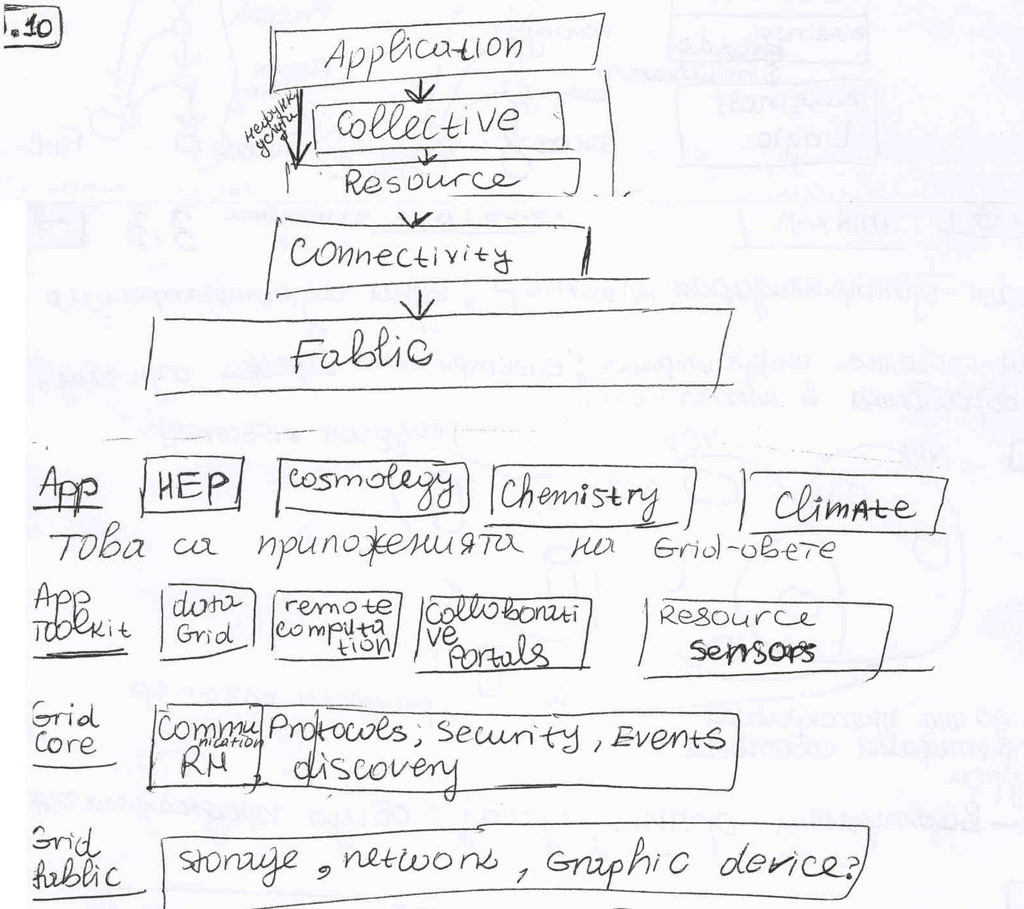 .10
Application
нефункц
услуги
Collective
Resource
Connectivity
Fablic
App HEP Cosmology Chemistry Climate
Това са приложенията на Grid-овете
App
Toolkit
data
Grid
remote
computa
tion
Collaborati
ve
Portals
Resource
sensors
Grid
Core
Commu
nication
RM
Protocols, Security, Events
discovery
Grid
fablic
storage, network, Graphic device?